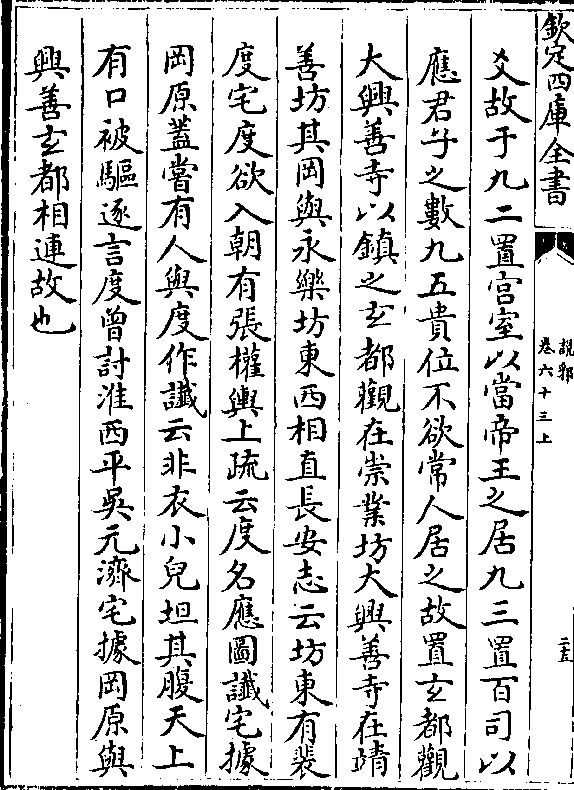 欽定四庫全書
說郛
卷六十三上
二五
爻故于九二置宫室以當帝王之居九三置百司以
應君子之數九五貴位不欲常人居之故置玄都觀
大興善寺以鎮之玄都觀在崇業坊大興善寺在靖
善坊其岡與永樂坊東西相直長安志云坊東有裴
度宅度欲入朝有張權輿上疏云度名應圖讖宅據
岡原蓋嘗有人與度作讖云非衣小兒坦其腹天上
有口被驅逐言度曾討淮西平吳元濟宅據岡原與
興善玄都相連故也